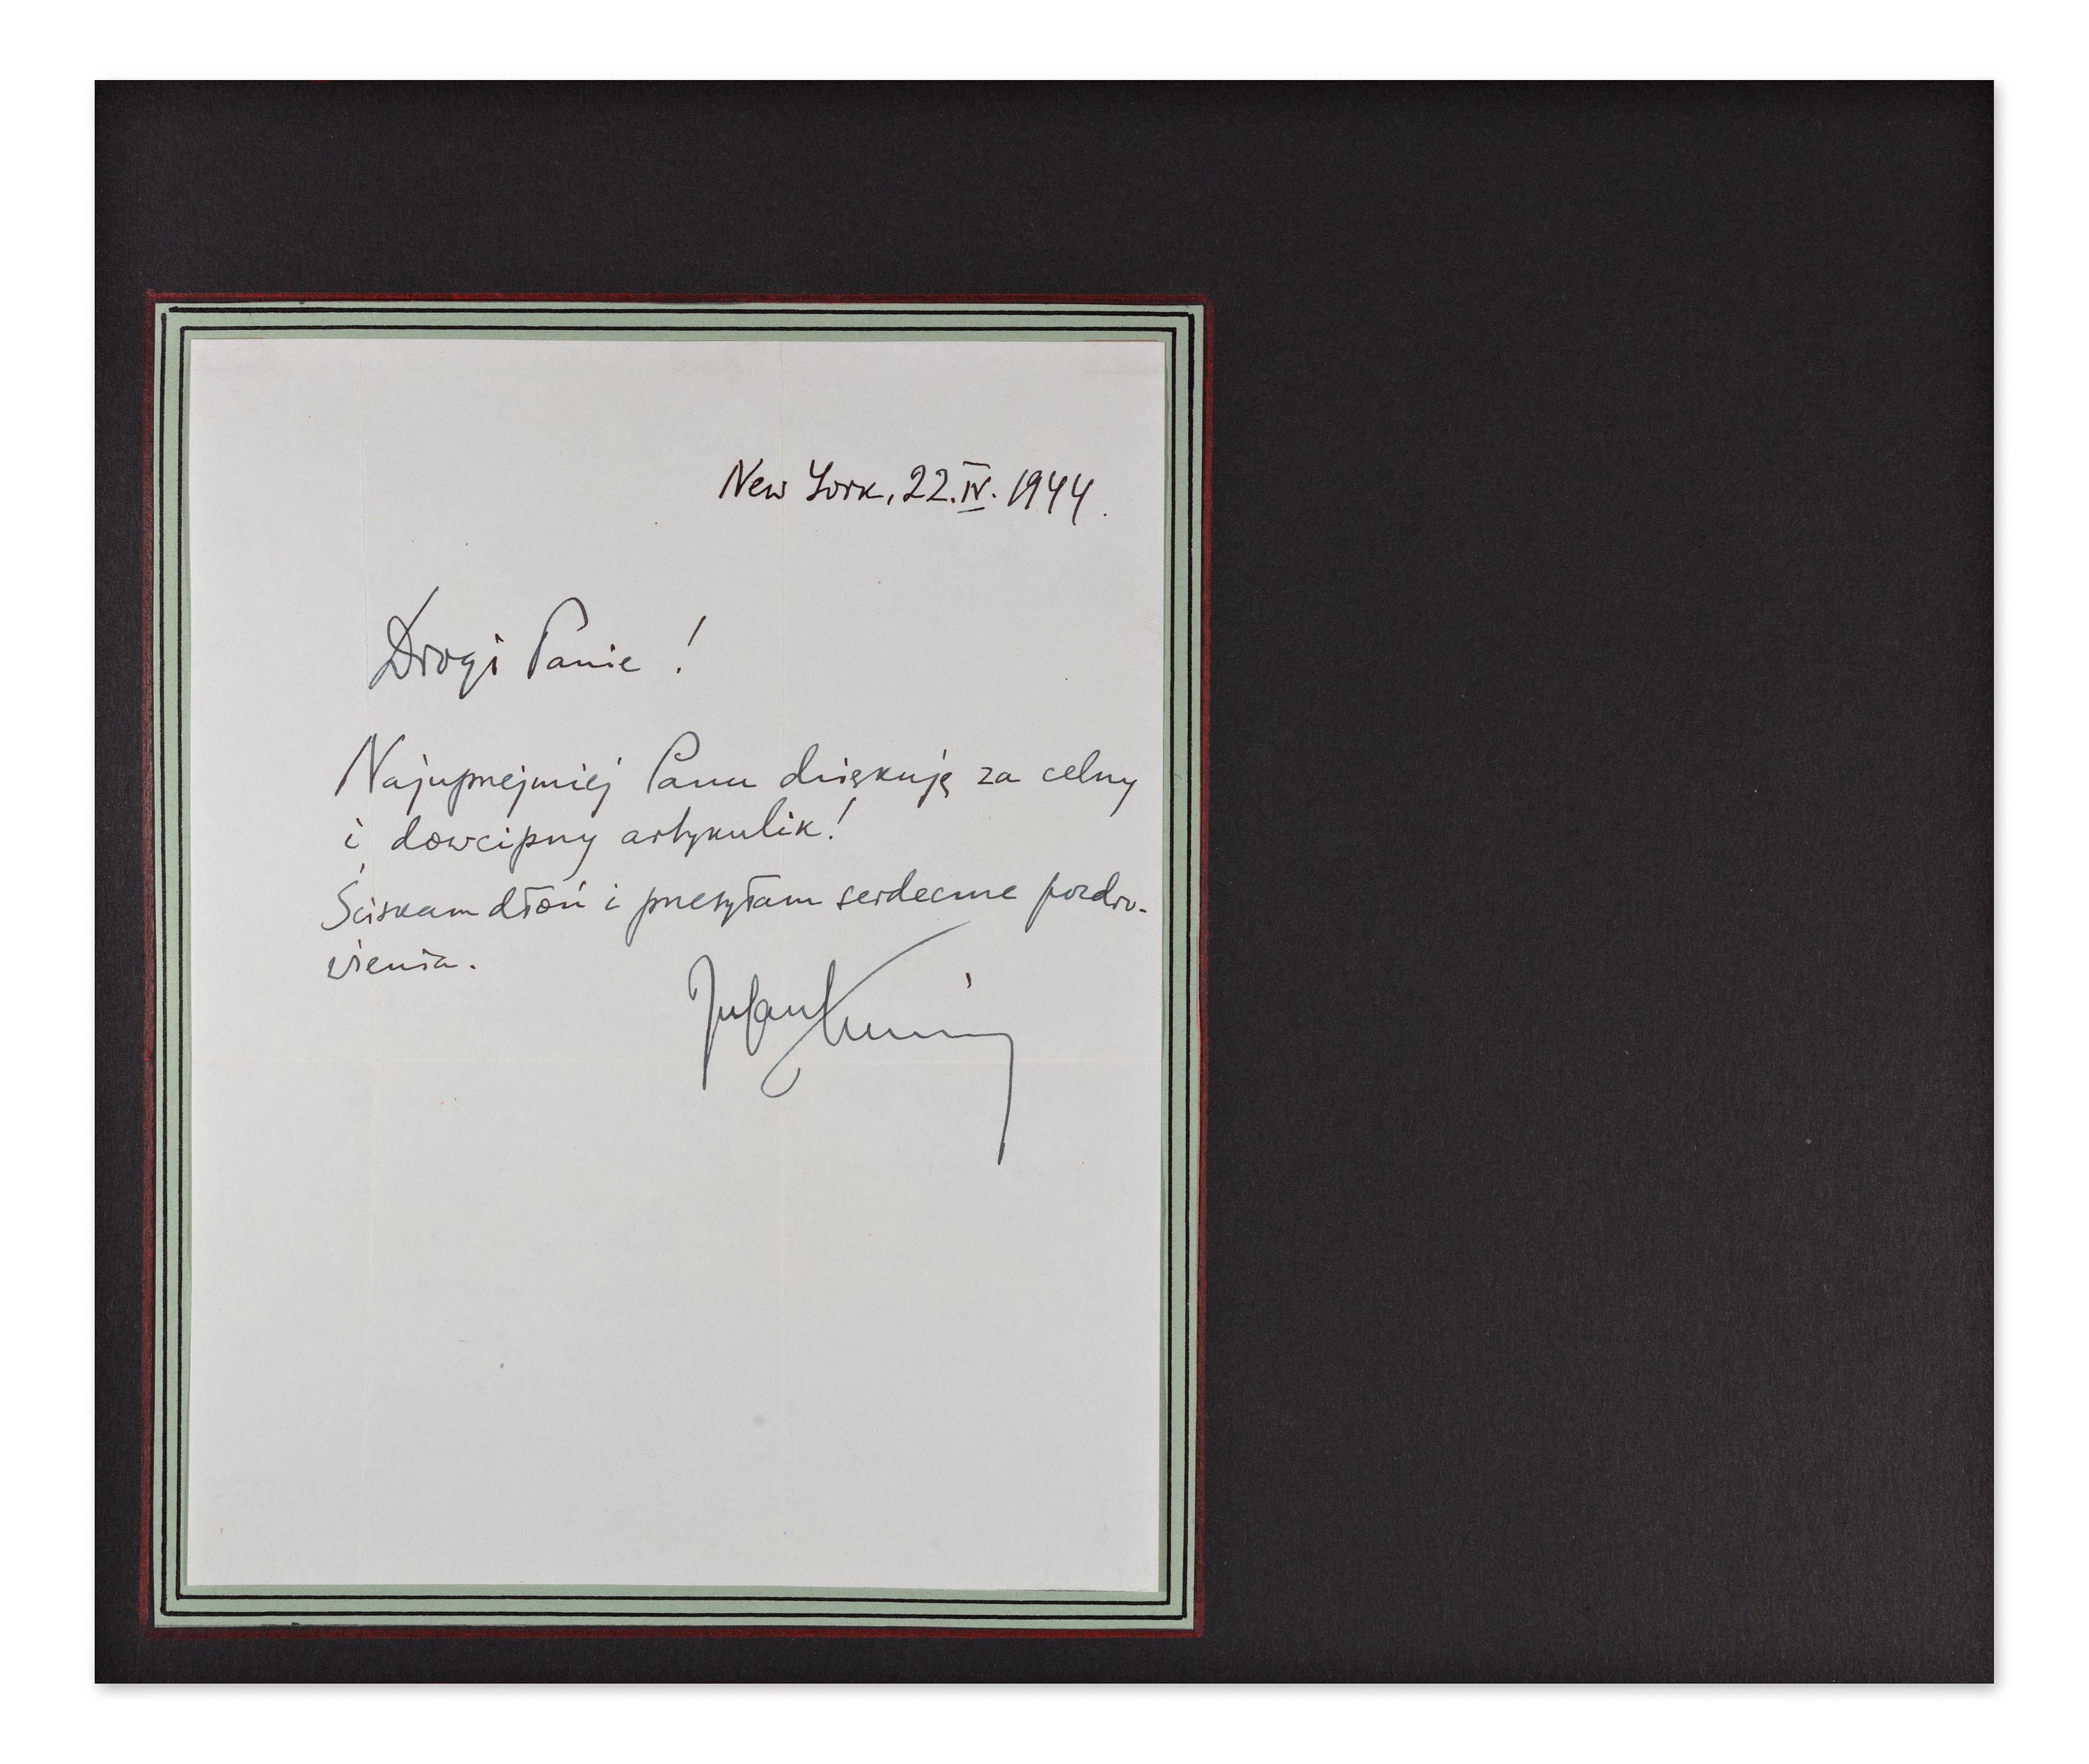 New York, 22.IV.1944.
Drogi Panie!
Najuprzejmiej Panu dziękuję za celny
i dowcipny artykulik!
Ściskam dłoń i przesyłam serdeczne pozdro-
wienia.
Julian Tuwim